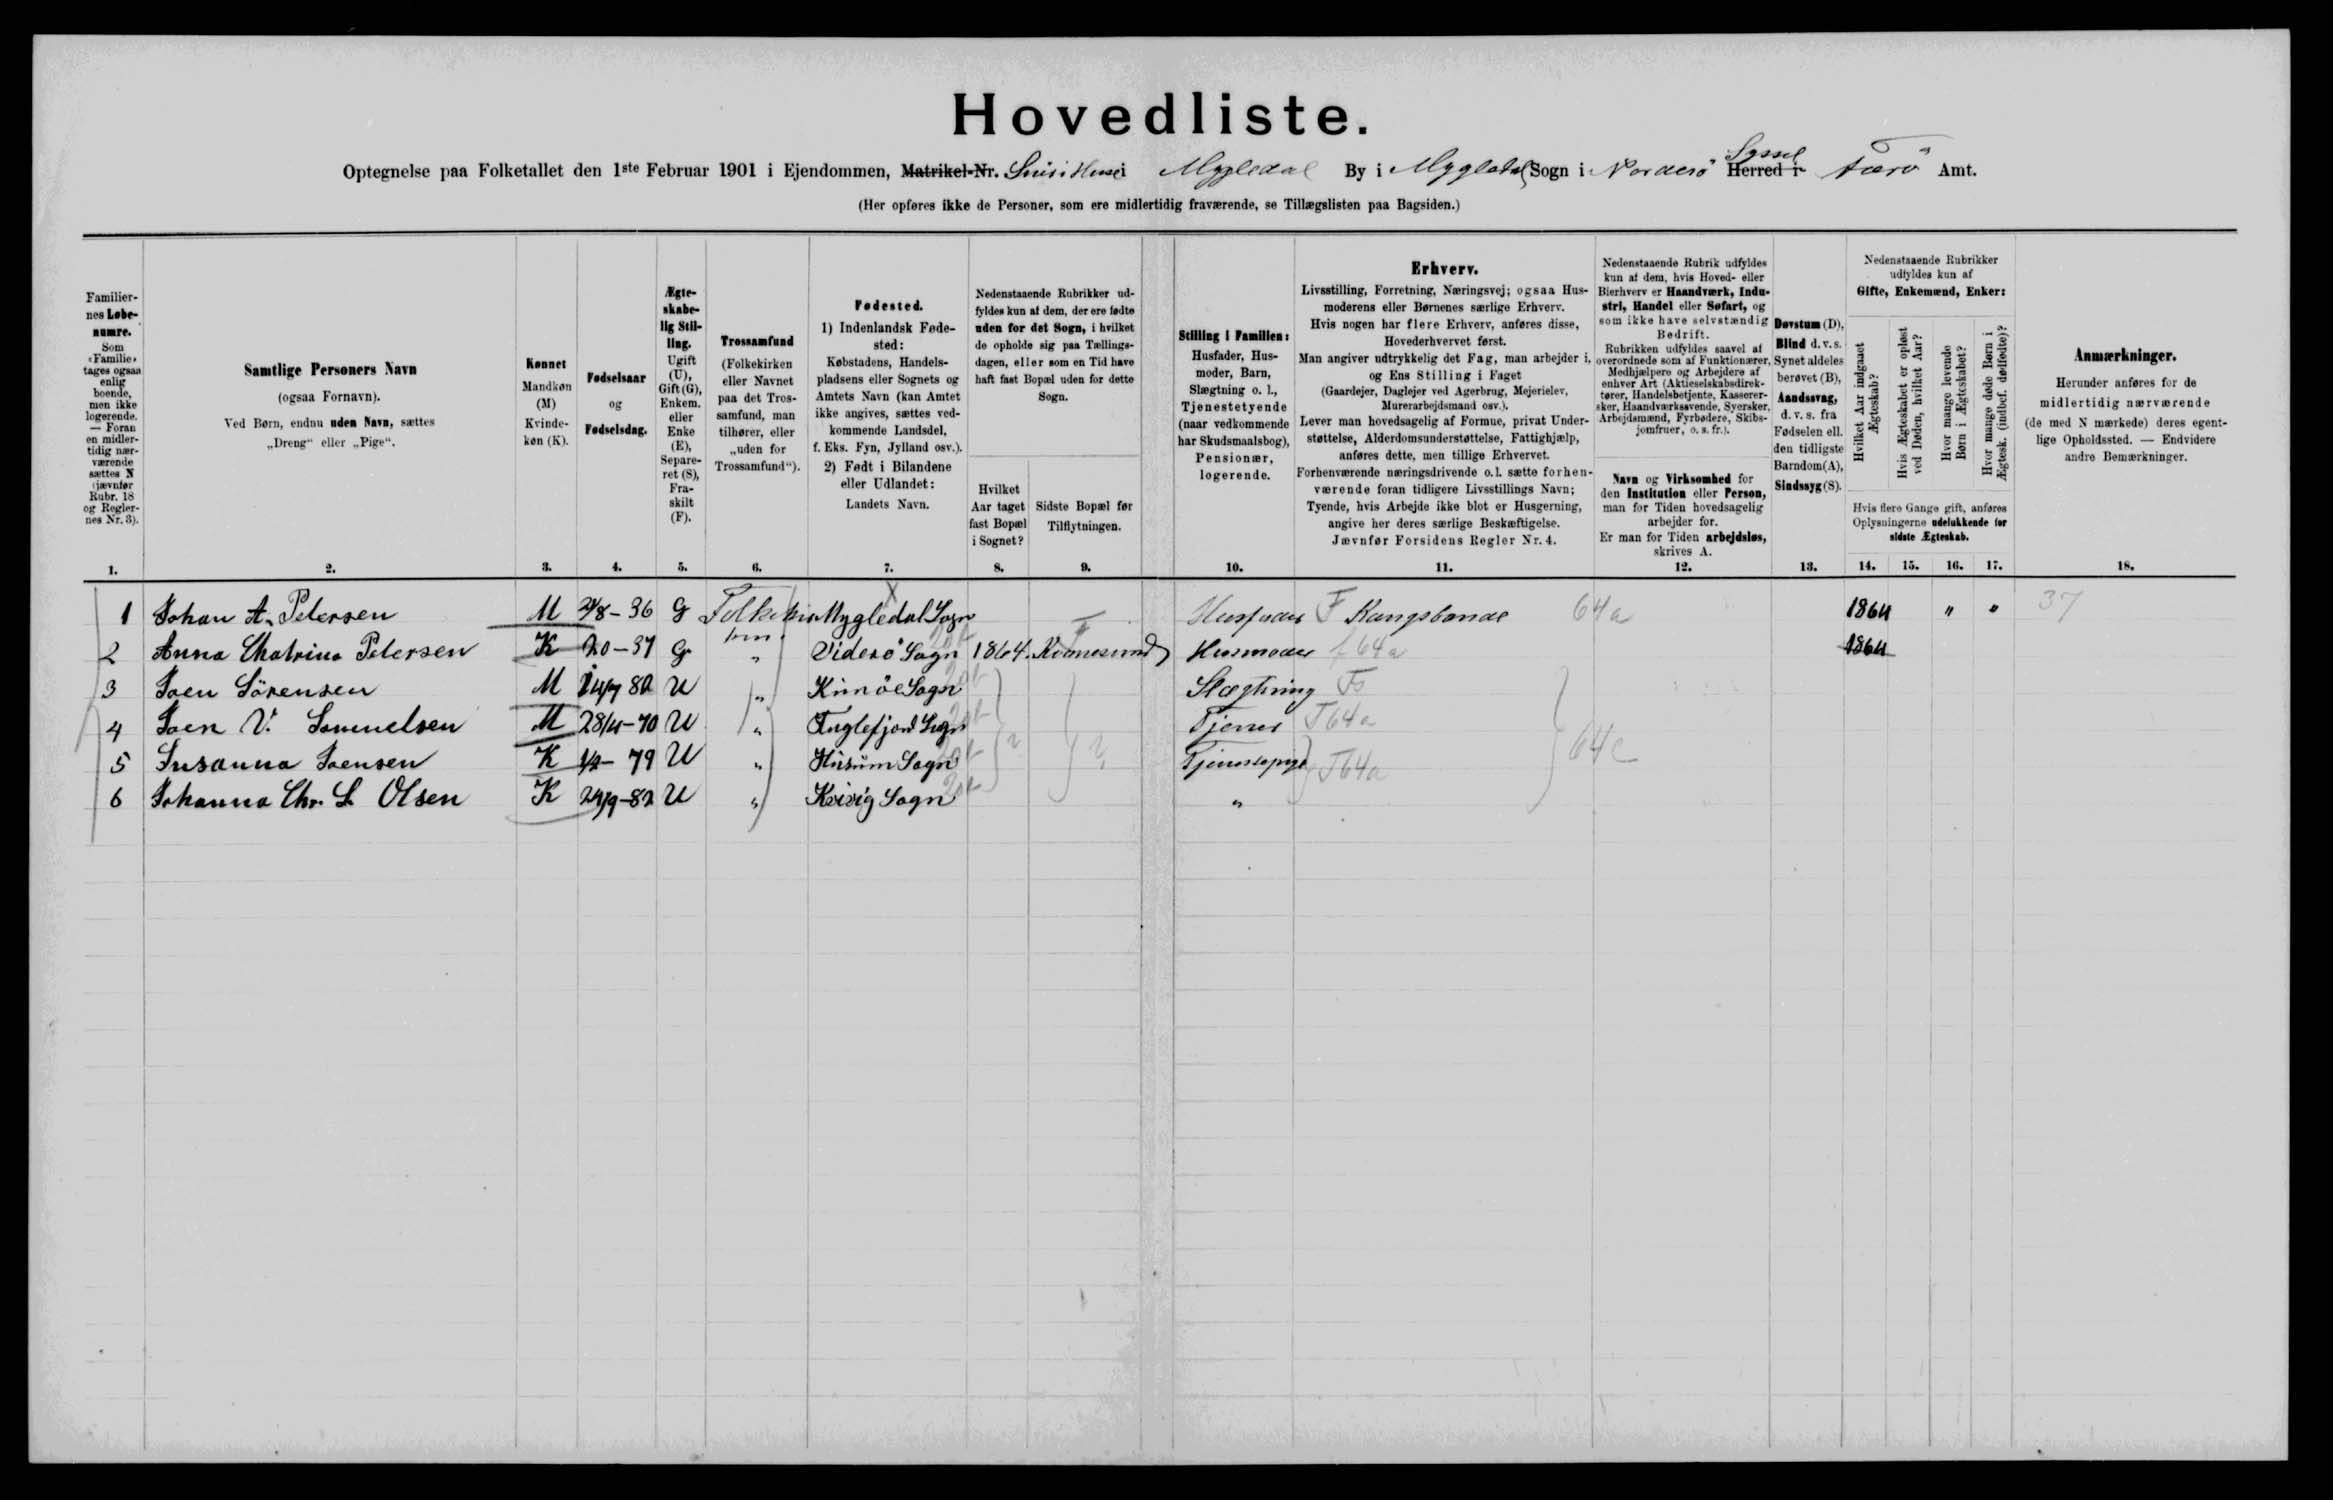 Hovedliste.
Optegnelse paa Folketallet den 1ste Februar 1901 i Ejendommen, Matrikel-Nr. i Mygledal By i Mygledal Sogn i Norderö Syssel Herred i Færö Amt.
(Her opføres ikke de Personer, som ere midlertidig fraværende, se Tillægslisten paa Bagsiden.)
Familier-
nes Løbe-
numre.
Som
«Familie»
tages ogsaa
enlig
boende,
men ikke
logerende.
— Foran
en midler-
tidig nær-
værende
sættes N
(jævnfør
Rubr. 18
og Regler-
nes Nr. 3).
1.
Samtlige Personers Navn
(ogsaa Fornavn).
Ved Børn, endnu uden Navn, sættes
„Dreng“ eller „Pige“.
2.
Kønnet
Mandkøn
(M)
Kvinde-
køn (K).
3.
Fødselsaar
og
Fødselsdag.
4.
Ægte-
skabe-
lig Stil-
ling.
Ugift
(U),
Gift (G),
Enkem.
eller
Enke
(E),
Separe-
ret (S),
Fra-
skilt
(F).
5.
Trossamfund
(Folkekirken
eller Navnet
paa det Tros-
samfund, man
tilhører, eller
„uden for
Trossamfund“).
6.
Fødested.
1) Indenlandsk Føde-
sted:
Købstadens, Handels-
pladsens eller Sognets og
Amtets Navn (kan Amtet
ikke angives, sættes ved-
kommende Landsdel,
f. Eks. Fyn, Jylland osv.).
2) Født i Bilandene
eller Udlandet:
Landets Navn.
7.
Nedenstaaende Rubrikker ud-
fyldes kun af dem, der ere fødte
uden for det Sogn, i hvilket
de opholde sig paa Tællings-
dagen, eller som en Tid have
haft fast Bopæl uden for dette
Sogn.
Hvilket
Aar taget
fast Bopæl
i Sognet?
8.
Sidste Bopæl før
Tilflytningen.
9.
Stilling i Familien:
Husfader, Hus-
moder, Barn,
Slægtning o. l.,
Tjenestetyende
(naar vedkommende
har Skudsmaalsbog),
Pensionær,
logerende.
10.
Erhverv.
Livsstilling, Forretning, Næringsvej; ogsaa Hus-
moderens eller Børnenes særlige Erhverv.
Hvis nogen har flere Erhverv, anføres disse,
Hovederhvervet først.
Man angiver udtrykkelig det Fag, man arbejder i,
og Ens Stilling i Faget
(Gaardejer, Daglejer ved Agerbrug, Mejerielev,
Murerarbejdsmand osv.).
Lever man hovedsagelig af Formue, privat Under-
støttelse, Alderdomsunderstøttelse, Fattighjælp,
anføres dette, men tillige Erhvervet.
Forhenværende næringsdrivende o.l. sætte forhen-
værende foran tidligere Livsstillings Navn;
Tyende, hvis Arbejde ikke blot er Husgerning,
angive her deres særlige Beskæftigelse.
Jævnfør Forsidens Regler Nr. 4.
11.
Nedenstaaende Rubrik udfyldes
kun af dem, hvis Hoved- eller
Bierhverv er Haandværk, Indu-
stri, Handel eller Søfart, og
som ikke have selvstændig
Bedrift.
Rubrikken udfyldes saavel af
overordnede som af Funktionærer,
Medhjælpere og Arbejdere af
enhver Art (Aktieselskabsdirek-
tører, Handelsbetjente, Kasserer-
sker, Haandværkssvende, Syersker,
Arbejdsmænd, Fyrbødere, Skibs-
jomfruer, o. s. fr.).
Navn og Virksomhed for
den Institution eller Person,
man for Tiden hovedsagelig
arbejder for.
Er man for Tiden arbejdsløs,
skrives A.
12.
Døvstum (D),
Blind d. v. s.
Synet aldeles
berøvet (B),
Aandssvag,
d. v. s. fra
Fødselen ell.
den tidligste
Barndom (A),
Sindssyg (S).
13.
Nedenstaaende Rubrikker
udfyldes kun af
Gifte, Enkemænd, Enker:
Hvilket Aar indgaaet
Ægteskab?
Hvis Ægteskabet er opløst
ved Døden, hvilket Aar?
Hvor mange levende
Børn i Ægteskabet?
Hvor mange døde Børn i
Ægtesk. (indbef. dødfødte)?
Hvis flere Gange gift, anføres
Oplysningerne udelukkende for
sidste Ægteskab.
14. 15. 16. 17.
Anmærkninger.
Herunder anføres for de
midlertidig nærværende
(de med N mærkede) deres egent-
lige Opholdssted. — Endvidere
andre Bemærkninger.
18.
1 Johan A. Petersen M 2/8-36 G Mygledal Sogn Husfader F Kongsbonde 64a 1864 " " 37
2 Anna Chatrina Petersen K 20-37 G " Viderö Sogn 1864. Kvannesund Husmoder f 64a 1864
3 Joen Sörensen M 82 U " Kunöe Sogn Slægtning Fs
4 Joen V. Samuelsen M 28/11-70 U " Fuglefjord Sogn Tjener T64a
5 Susanna Joensen K 79 U " Husum Sogn Tjenestepige T64a 64c
6 Johanna Chr. S. Olsen K 24/9-82 U " Kvivig Sogn "